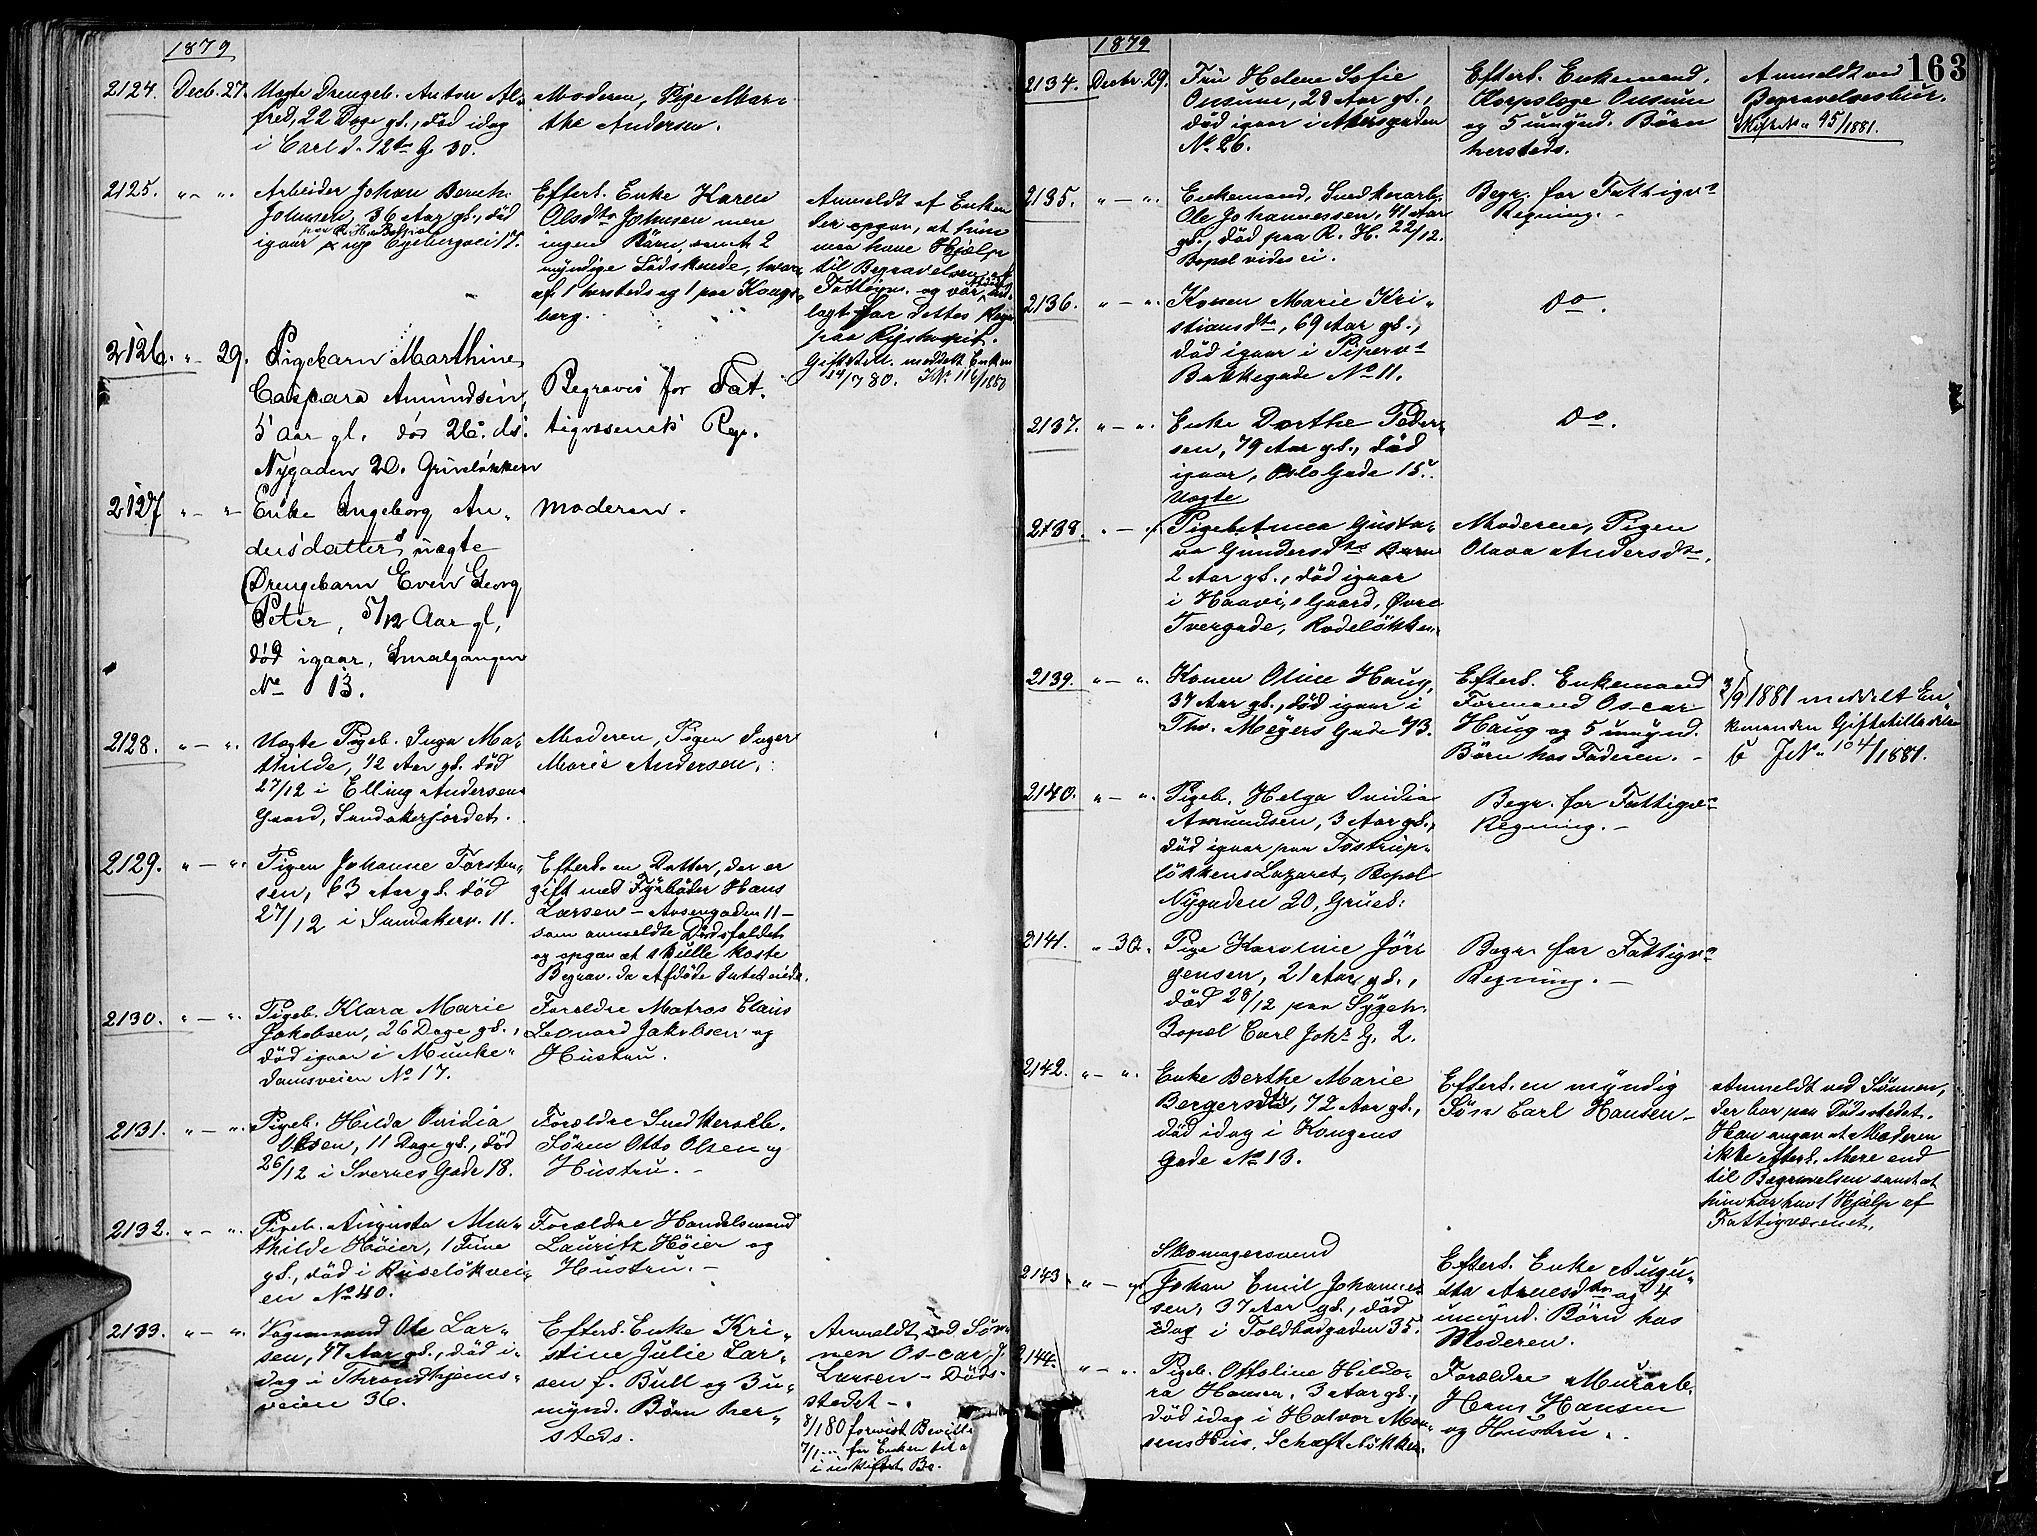 1879
2124. Decb. 27. Uægte Drengeb. Anton Al-
fred, 22 Dage gl., død idag
i Carl d. 12tes G. 30.
Moderen, Pige Mar-
the Andersen.
2125. " - " Arbeider Johan Bernh.
Johnsen, 36 Aar gl., død
igaar paa R. H. Bopæl
Egebergvei 17.
Efterl. Enke Karen
Olsdtr Johnsen men
ingen Børn, samt 2
myndige Sødskende, hvor-
af 1 hersteds og 1 paa Kongs-
berg.
Anmeldt af Enken
der opgav, at hun
maa have Hjælp
til Begravelsen af
Fattigv. og var
lagt for dettes Regn.
paa Rigshospit.
Giftstill. meddelt Enken
14/7 80. JNo 116/1880
2126. " - 29. Pigebarn Marthine
Caspara Amundsen,
5 Aar gl. død 26. ds.
Nygaden 20. Grünerløkken
Begraves for Fat-
tigvæsenets Reg.
2127 " - " Enke Ingeborg An-
dersdatters uægte
Drengebarn Even Georg
Peter, 5/12 Aar gl,
død igaar, Smalgangen
No 13.
Moderen.
2128. " - " Uægte Pigeb. Inga Ma-
thilde, 12 Aar gl. død
27/12 i Elling Andersens
Gaard, Sandakerjordet.
Moderen, Pigen Inger
Marie Andersen.
2129. " - " Pigen Johanne Torsten-
sen, 63 Aar gl. død
27/12 i Sandakerv. 11.
Efterl. en Datter, der er
gift med Fyrbøder Hans
Larsen - Aasengaden 11 -
som anmeldte Dødsfaldet
og opgav at skulle koste
Begrav. da Afdøde Intet eiede.
2130. " - " Pigeb. Klara Marie
Jakobsen, 26 Dage gl.,
død igaar i Munke-
damsveien No 17.
Forældre Matros Claus
Leonard Jakobsen og
Hustru.
2131. " - " Pigeb. Hilda Ovidia
Olsen, 11 Dage gl., død
26/12 i Sverres Gade 18.
Forældre Snedkersv.
Søren Otto Olsen og
Hustru. -
2132. " - " Pigeb. Augusta Ma-
thilde Høier, 1 Time
gl., død i Ruseløkvei-
en No 40.
Forældre Handelsmand
Lauritz Høier og
Hustru. -
2133. " - " Vognmand Ole Lar-
sen, 47 Aar gl., død i-
dag i Throndhjems-
veien 36.
Efterl. Enke Kri-
stine Julie Lar-
sen f. Bull og 3 u-
mynd. Børn her-
steds.
Anmeldt ved Søn-
nen Oscar J.
Larsen - Døds-
stedet -
8/1 80 forevist Bevill.
7/1 for Enken til a
i uskiftet Bo.
1879
163
2134. Decbr. 29. Fru Helene Sofie
Onsum, 28 Aar gl.,
død igaar i Akersgaden
No. 26.
Efterl. Enkemand,
Korpslæge Onsum
og 5 umynd. Børn
hersteds.
Anmeldt ved
Begravelsesbur.
Skifte No 95/1881.
2135. " - " Enkemand, Snedkerarb.
Ole Johannessen, 41 Aar
gl., død paa R. H. 22/12.
Bopæl vides ei.
Begr. for Fattigv.s
Regning. -
2136. " - " Konen Marie Kri-
stiansdtr, 69 Aar gl.,
død igaar i Piperv.s
Bakkegade No 11.
Do.
2137. " - " Enke Dorthe Peder-
sen, 79 Aar gl., død
igaar, Oslo Gade 15.
Do.
2138. " - " Uægte
Pigeb. Anna Gusta-
va Gundersdtr Barn
2 Aar gl., død igaar
i Haavi.s Gaard, Øvre
Tvergade, Rodeløkken.
Moderen, Pigen
Olava Andersdtr.
2139. " - " Konen Oline Haug,
37 Aar gl., død igaar i
Thv. Meyers Gade 73.
Efterl. Enkemand
Formand Oscar
Haug og 5 umynd.
Børn hos Faderen. -
3/9 1881 meddelt En-
kemanden Giftstilladelse
JNo 104/1881.
2140. " - " Pigeb. Helga Ovidia
Amundsen, 3 Aar gl.,
død igaar paa Tostrup-
løkkens Lazaret, Bopæl
Nygaden 20, Grünerl.
Begr. for Fattigv.s
Regning. -
2141. " 30. Pige Karoline Jør-
gensen, 21 Aar gl.,
død 28/12 paa Sygeh.
Bopæl Carl Johs G. 2.
Begr. for Fattigv.s
Regning. -
2142. " - " Enke Berthe Marie
Bergersdtr, 72 Aar gl.,
død idag i Kongens
Gade No 13.
Efterl. en myndig
Søn Carl Hansen -
Anmeldt ved Sønnen,
der bor paa Dødsstedet.
Han angav at Moderen
ikke efterl. Mere end
til Begravelsen samt at
hun har havt Hjælp af
Fattigvæsenet.
2143. " - " Skomagersvend
Johan Emil Johannes-
sen, 37 Aar gl., død
idag i Toldbodgaden 35.
Efterl. Enke Augu-
sta Arnesdtr og 4
umynd. Børn hos
Moderen.
2144. " - " Pigeb. Ottoline Hildo-
ra Hansen, 3 Aar gl.,
død idag i Halvor Mon-
sens Hus, Schæfteløkken.
Forældre Murarb.
Hans Hansen
og Hustru.